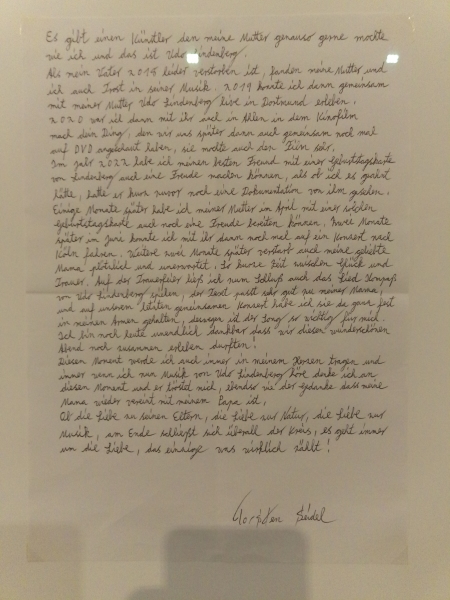 Es gibt einen Künstler den meine Mutter genauso gerne mochte
wie ich und das ist Udo Lindenberg.
Als mein Vater 2015 leider verstorben ist, fanden meine Mutter und
ich auch Trost in seiner Musik. 2019 konnte ich dann gemeinsam
mit meiner Mutter Udo Lindenberg live in Dortmund erleben.
2020 war ich dann mit ihr auch in Ahlen in dem Kinofilm
mach dein Ding, den wir uns später dann auch gemeinsam noch mal
auf DVD angeschaut haben, sie mochte auch den Film sehr.
Im Jahr 2022 habe ich meinem besten Freund mit einer Geburtstagskarte
von Lindenberg auch eine Freude machen können, als ob ich es geahnt
hätte, hatte er kurz zuvor noch eine Dokumentation von ihm gesehen.
Einige Monate später habe ich meiner Mutter im April mit einer solchen
Geburtstagskarte auch noch eine Freude bereiten können. Zwei Monate
später im Juni konnte ich mit ihr dann noch mal auf ein Konzert nach
Köln fahren. Weitere zwei Monate später verstarb auch meine geliebte
Mama plötzlich und unerwartet. So kurze Zeit zwischen Glück und
Trauer. Auf der Trauerfeier ließ ich zum Schluß auch das Lied Kompass
von Udo Lindenberg spielen, der Text passt sehr gut zu meiner Mama,
und auf unserem letzten gemeinsamen Konzert habe ich sie da ganz fest
in meinen Armen gehalten, deswegen ist der Song so wichtig für mich.
Ich bin noch heute unendlich dankbar dass wir diesen wunderschönen
Abend noch zusammen erleben durften!
Diesen Moment werde ich auch immer in meinem Herzen tragen und
immer wenn ich nun Musik von Udo Lindenberg höre denke ich an
diesen Moment und er tröstet mich, ebenso wie der Gedanke dass meine
Mama wieder vereint mit meinem Papa ist.
Ob die Liebe zu seinen Eltern, die Liebe zur Natur, die Liebe zur
Musik, am Ende schließt sich überall der Kreis, es geht immer
um die Liebe, das einzige was wirklich zählt!
Torsten Seidel